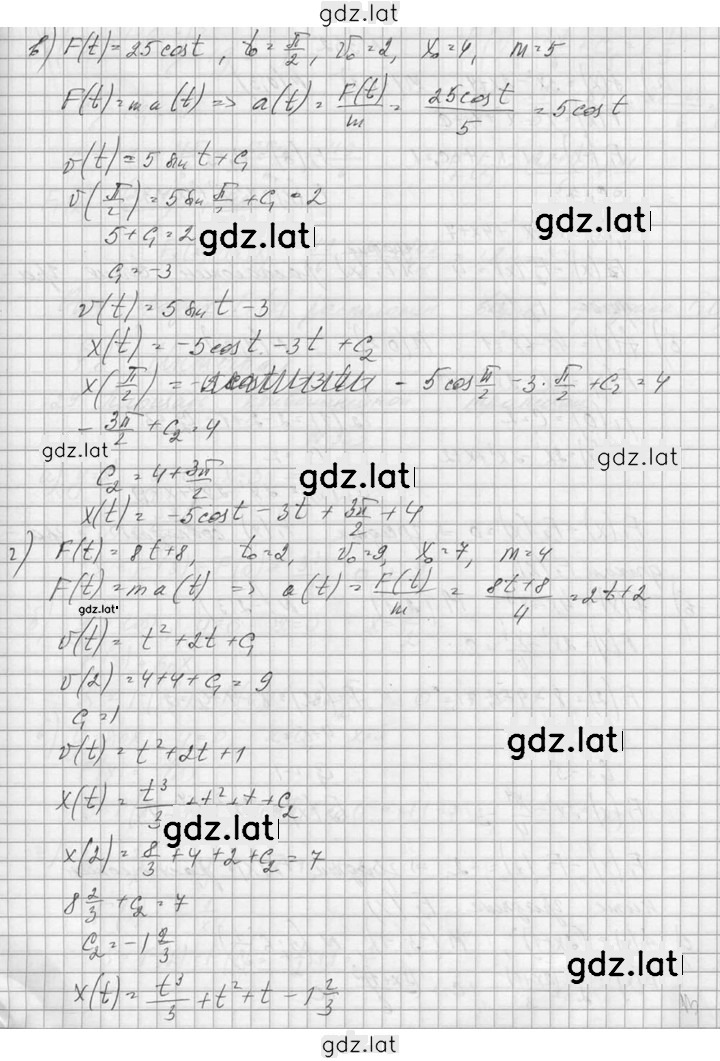 gdz.lat
в) F(t)=25cost, t₀=π/2, v₀=2, x₀=4, m=5
F(t)=ma(t) => a(t)=F(t)/m=25cost/5=5cost
v(t)=5sint+C₁
v(π/2)=5sinπ/2+C₁=2
5+C₁=2
gdz.lat
C₁=-3
v(t)=5sint-3
x(t)=-5cost-3t+C₂
x(π/2)=-5cosπ/2-3·π/2+C₂=4
-3π/2+C₂=4
gdz.lat
gdz.lat
gdz.lat
C₂=4+3π/2
x(t)=-5cost-3t+3π/2+4
г) F(t)=8t+8, t₀=2, v₀=9, x₀=7, m=4
F(t)=ma(t) => a(t)=F(t)/m=8t+8/4=2t+2
gdz.lat
v(t)=t²+2t+C₁
v(2)=4+4+C₁=9
C₁=1
gdz.lat
v(t)=t²+2t+1
x(t)=t³/3+t²+t+C₂
gdz.lat
x(2)=8/3+4+2+C₂=7
8 2/3+C₂=7
C₂=-1 2/3
gdz.lat
x(t)=t³/3+t²+t-1 2/3
gdz.lat